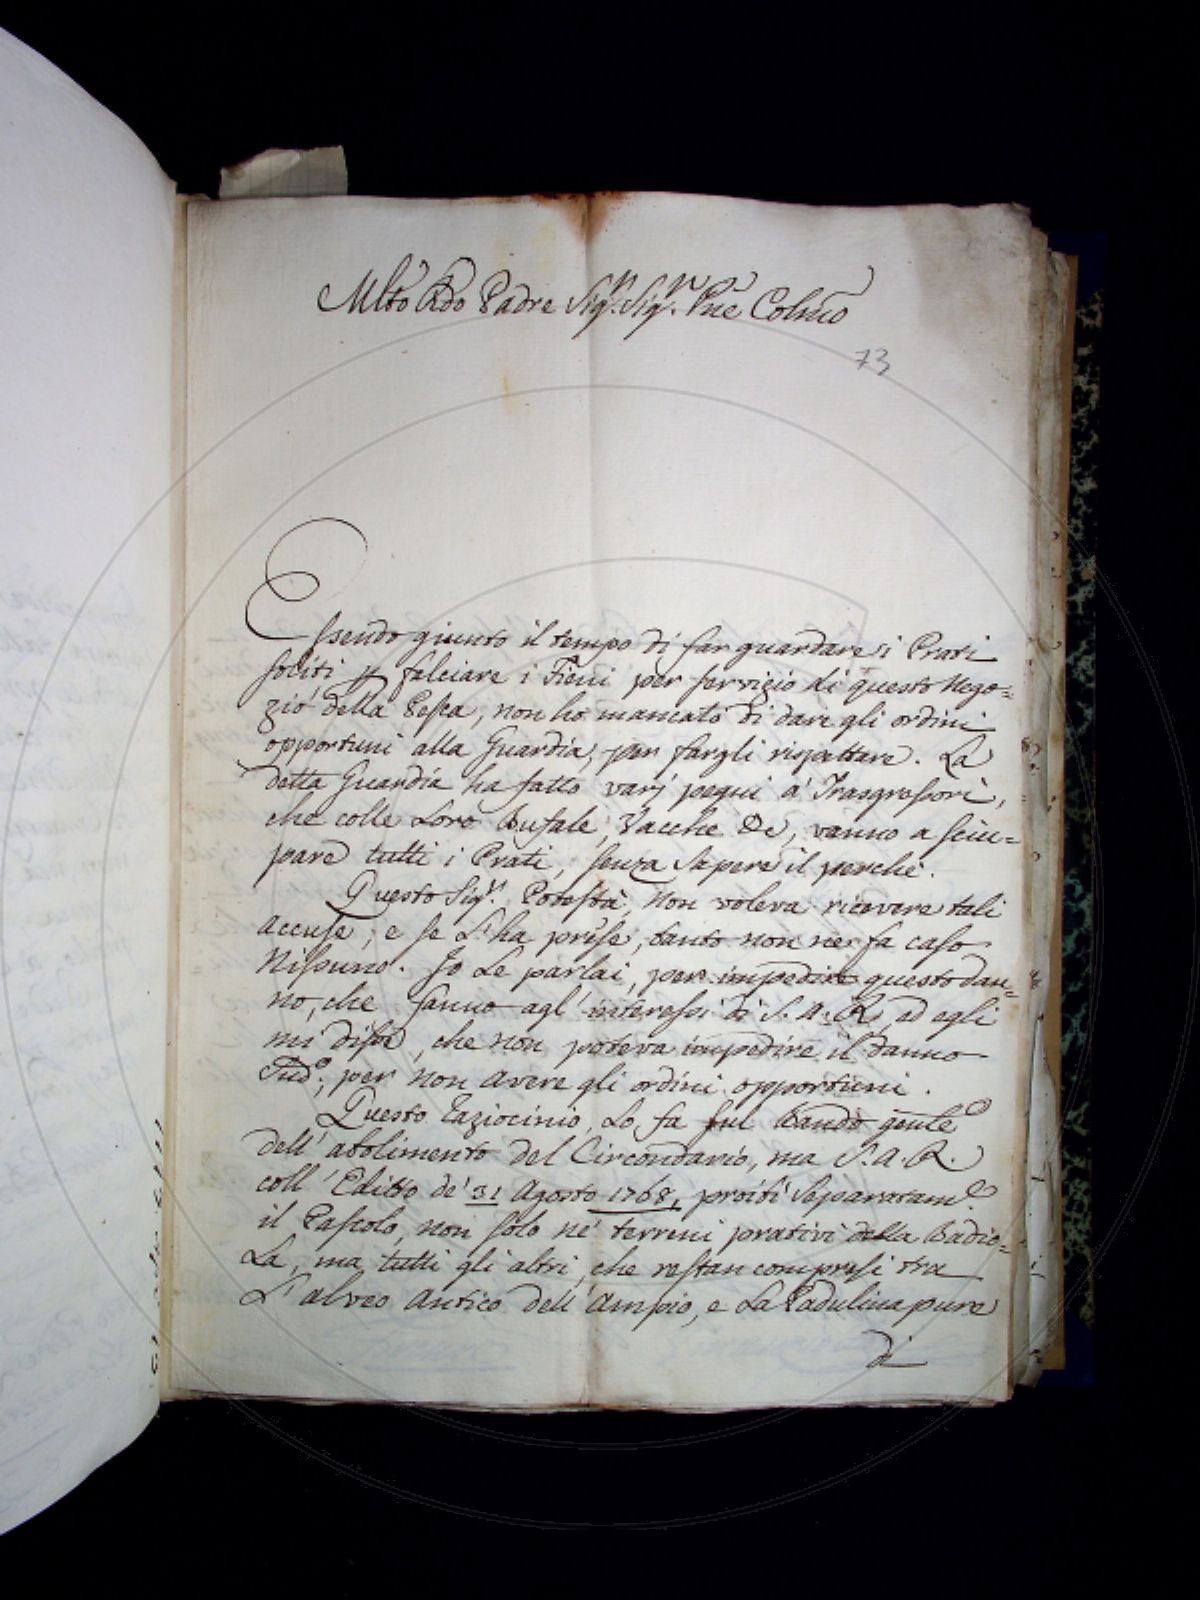 Mlto Rdo Padre Sigr. Sigr. Pne Colmo
73
Essendo giunto il tempo di far guardare i Prati
soliti p falciare i Fieni per servizio di questo Nego=
zio della Pesca, non ho mancato di dare gli ordini
opportuni alla Guardia, per fargli rispettare. La
detta Guardia ha fatto varj pegni a' Trasgressori,
che colle Loro Bufale, Vacche &c, vanno a sciu=
pare tutti i Prati, senza sapere il perchè.
Questo Sigr. Potestà, non voleva ricevere tali
accuse, e se L'ha prése, tanto non ne fa caso
Nissuno. Io Le parlai, per impedire questo dan=
no, che fanno agl' interessi di S. A. R, ad egli
mi disse, che non poteva impedire il danno
Sudo., per non avere gli ordini opportuni.
Questo Raziocinio, Lo fa sul bando gente
dell' abolimento del Circondario, ma S. A. R.
coll' Editto de' 31 Agosto 1768, proibì Separatame
il Pascolo, non solo ne' terreni prativi della Badio=
La, ma tutti gli altri, che restan compresi tra
L' alveo antico dell' Ampio, e La Padulina pure
di